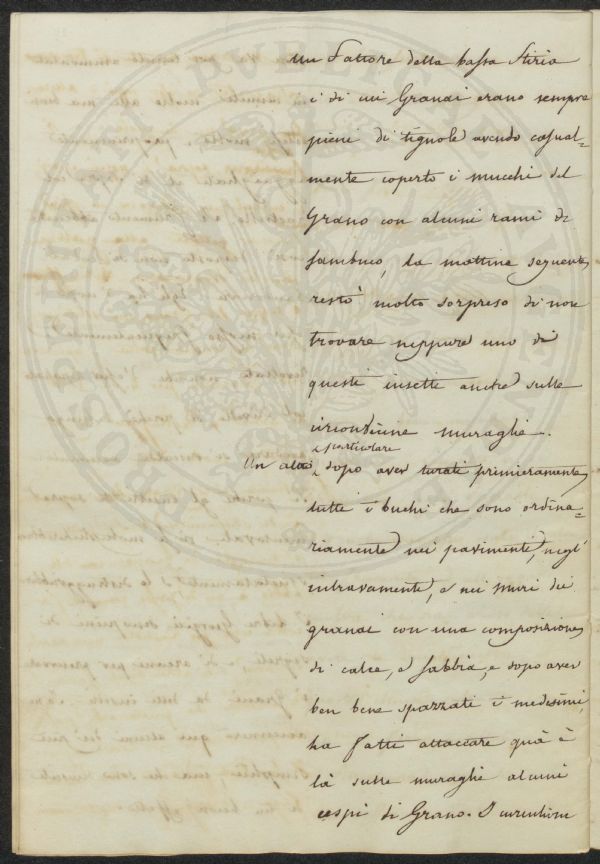 un Fattore della bassa Stiria
i di cui Granai erano sempre
pieni di tignole avendo casual=
mente coperto i mucchi del
Grano con alcuni rami di
sambuco, la mattina seguente
restò molto sorpreso di non
trovare neppure uno di
questi insetti anche sulle
circonvicine muraglie.
particolare
Un altro, dopo aver turati primieramente
tutti i buchi che sono ordina=
riamente nei pavimenti, negl'
intravamenti, e nei muri dei
granai con una composizione
di calce, e sabbia, e dopo aver
ben bene spazzati i medesimi,
ha fatti attaccare quà e
là sulle muraglie alcuni
cespi di Grano. I curculioni